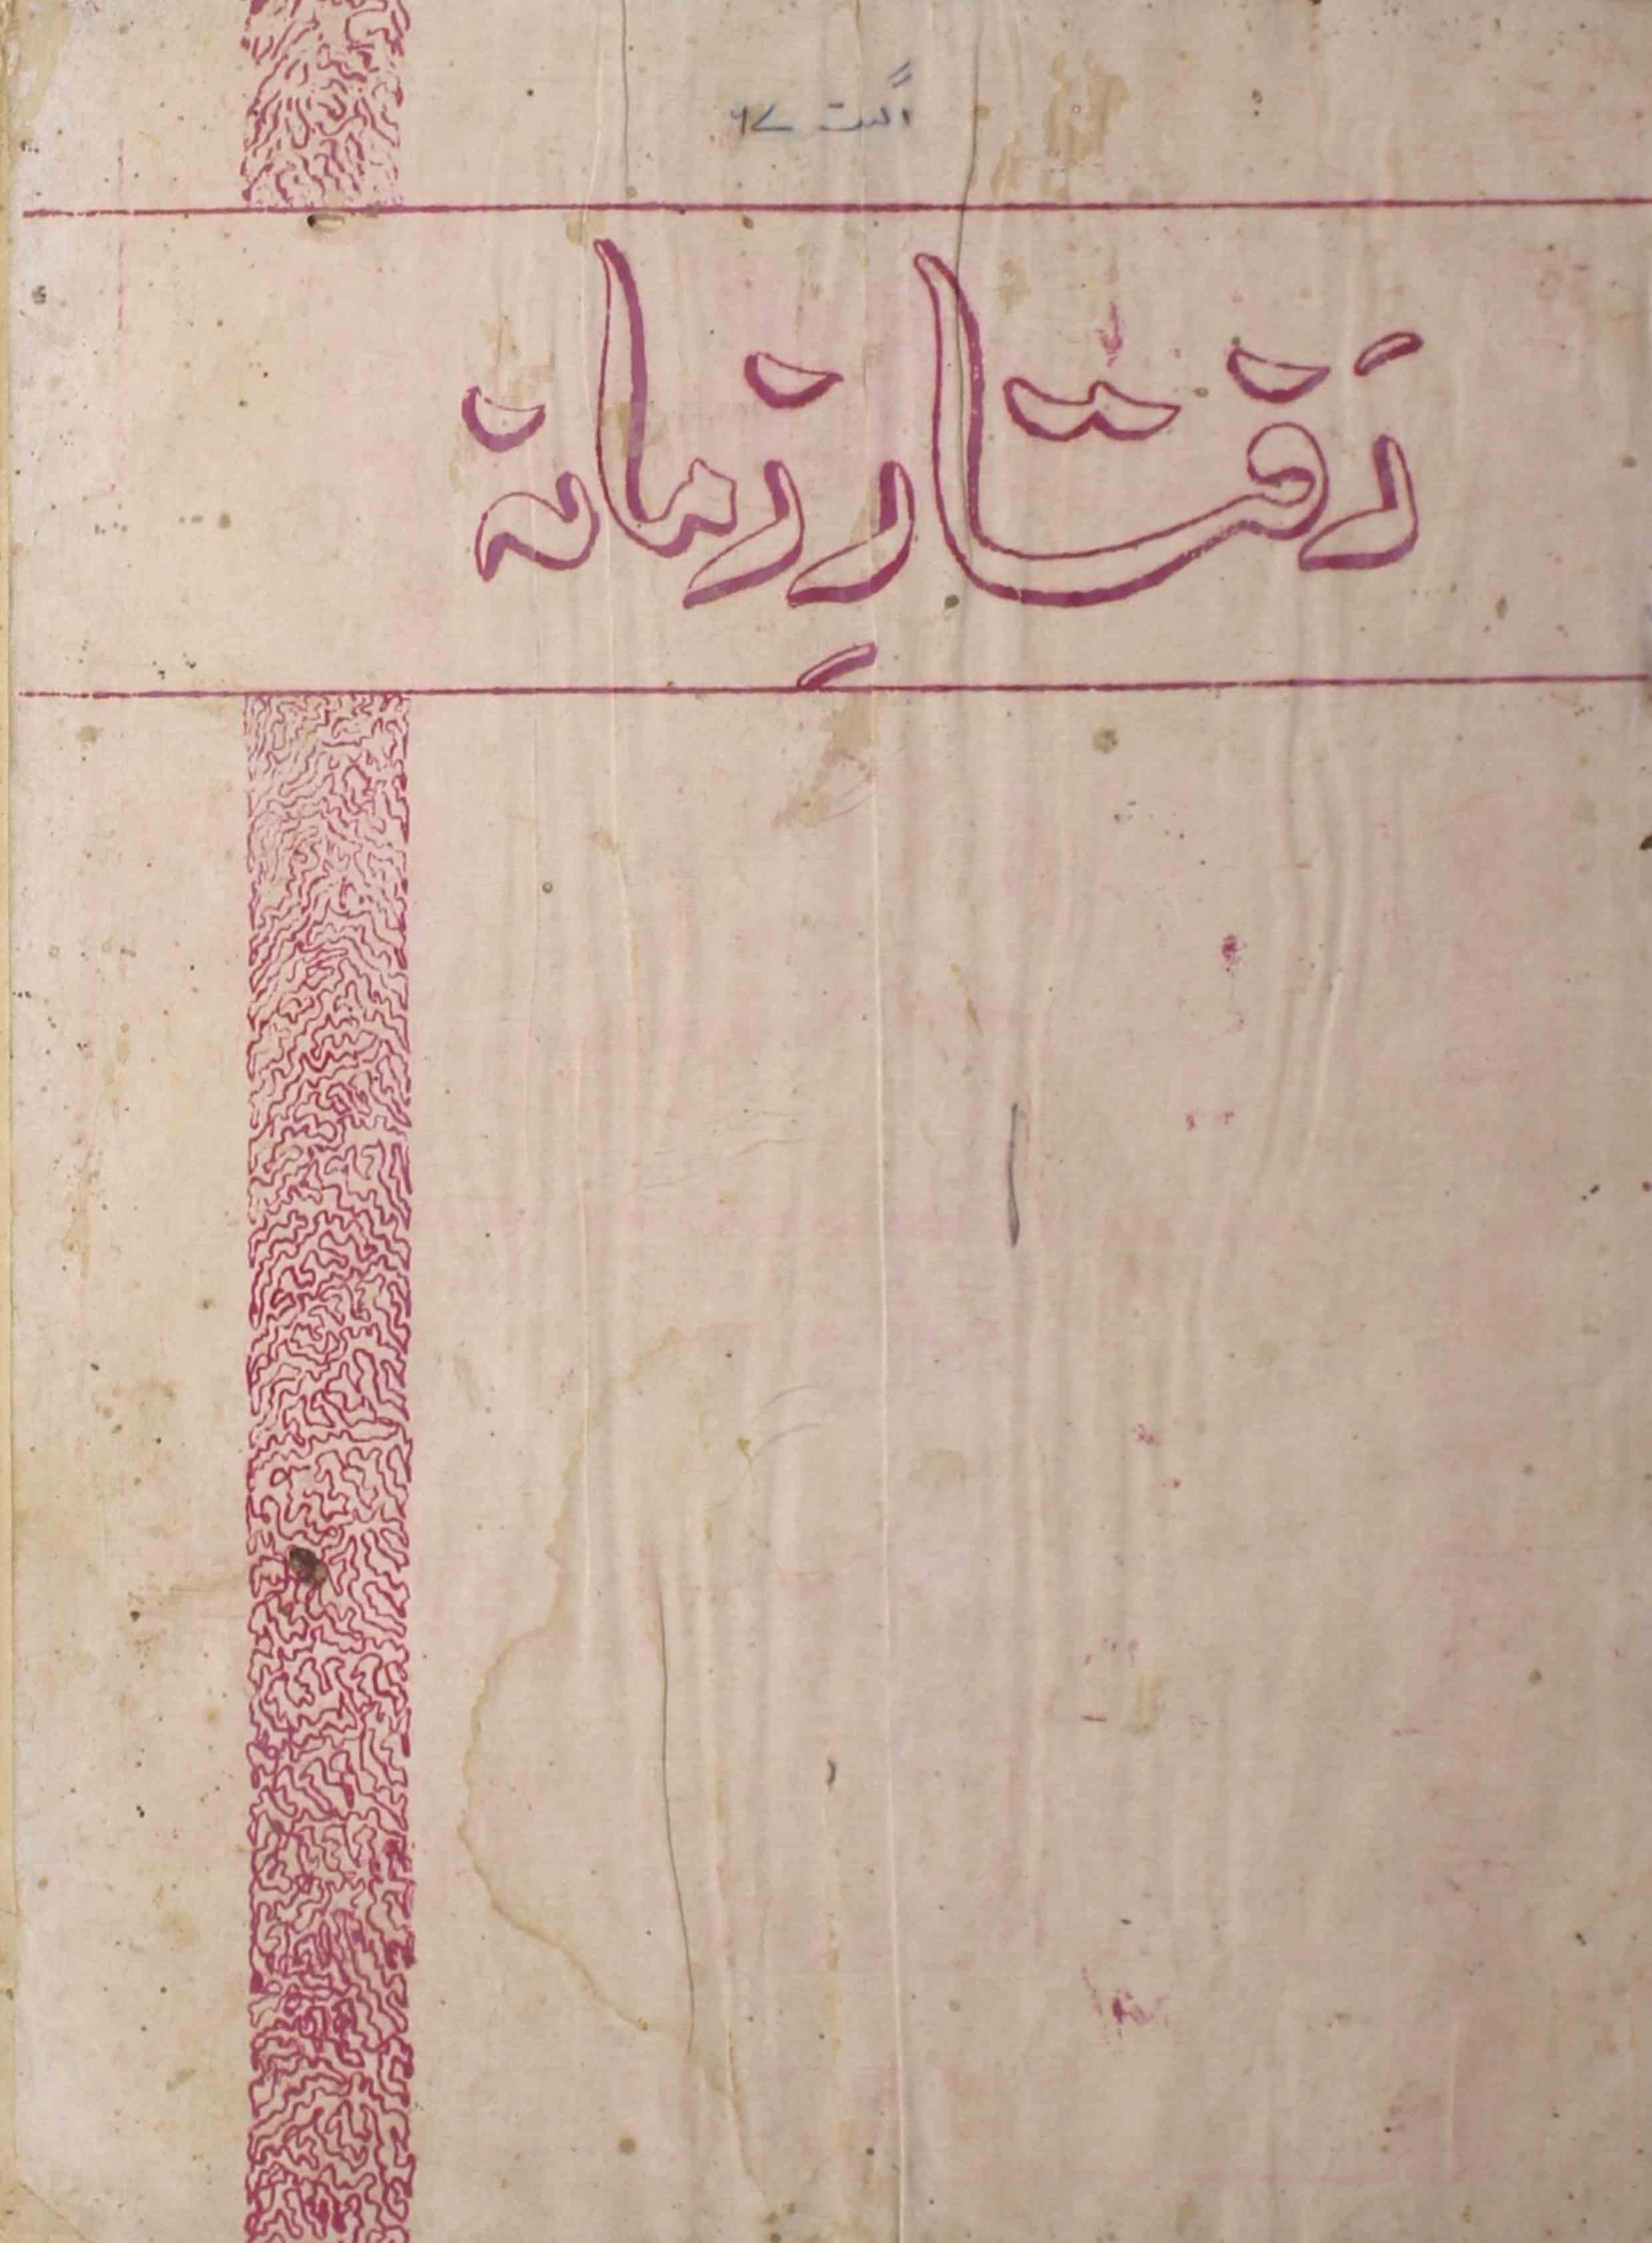 اگست ۶۷
رَفتارِ زمانہ